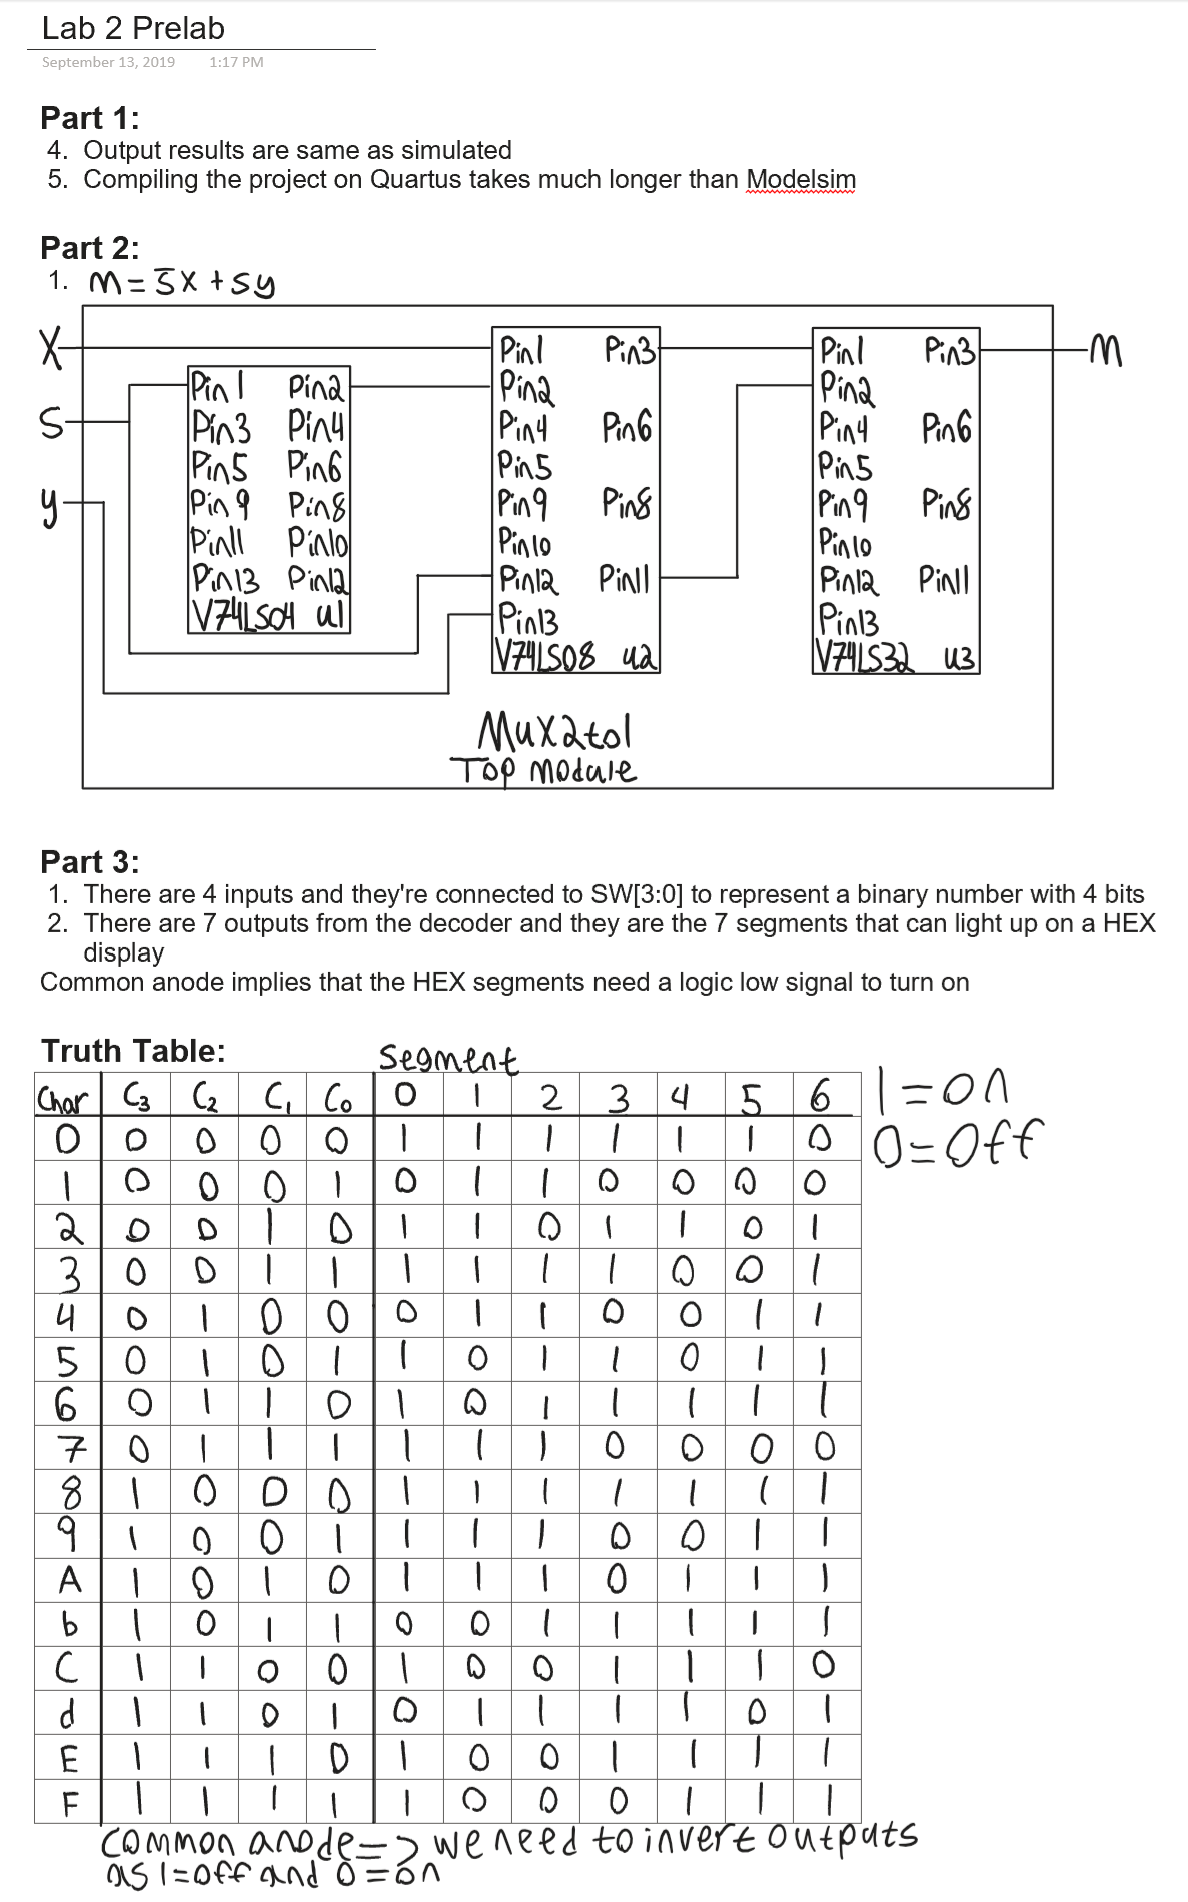 Lab 2 Prelab
September 13, 2019 1:17 PM
Part 1:
4. Output results are same as simulated
5. Compiling the project on Quartus takes much longer than Modelsim
Part 2:
1. m = s̅x + sy
X Pin1 Pin3 Pin1 Pin3 m
Pin1 Pin2 Pin2 Pin2
S Pin3 Pin4 Pin4 Pin6 Pin4 Pin6
Pin5 Pin6 Pin5 Pin5
y Pin9 Pin8 Pin9 Pin8 Pin9 Pin8
Pin11 Pin10 Pin10 Pin10
Pin13 Pin12 Pin12 Pin11 Pin12 Pin11
V74LS04 u1 Pin13 Pin13
V74LS08 u2 V74LS32 u3
Mux2to1
Top module
Part 3:
1. There are 4 inputs and they're connected to SW[3:0] to represent a binary number with 4 bits
2. There are 7 outputs from the decoder and they are the 7 segments that can light up on a HEX
display
Common anode implies that the HEX segments need a logic low signal to turn on
Truth Table:
Segment
Char C₃ C₂ C₁ C₀ 0 1 2 3 4 5 6
1 = on
0 = off
0 0 0 0 0 1 1 1 1 1 1 0
1 0 0 0 1 0 1 1 0 0 0 0
2 0 0 1 0 1 1 0 1 1 0 1
3 0 0 1 1 1 1 1 1 0 0 1
4 0 1 0 0 0 1 1 0 0 1 1
5 0 1 0 1 1 0 1 1 0 1 1
6 0 1 1 0 1 0 1 1 1 1 1
7 0 1 1 1 1 1 1 0 0 0 0
8 1 0 0 0 1 1 1 1 1 1 1
9 1 0 0 1 1 1 1 0 0 1 1
A 1 0 1 0 1 1 1 0 1 1 1
b 1 0 1 1 0 0 1 1 1 1 1
C 1 1 0 0 1 0 0 1 1 1 0
d 1 1 0 1 0 1 1 1 1 0 1
E 1 1 1 0 1 0 0 1 1 1 1
F 1 1 1 1 1 0 0 0 1 1 1
Common anode => we need to invert outputs
as 1 = off and 0 = on